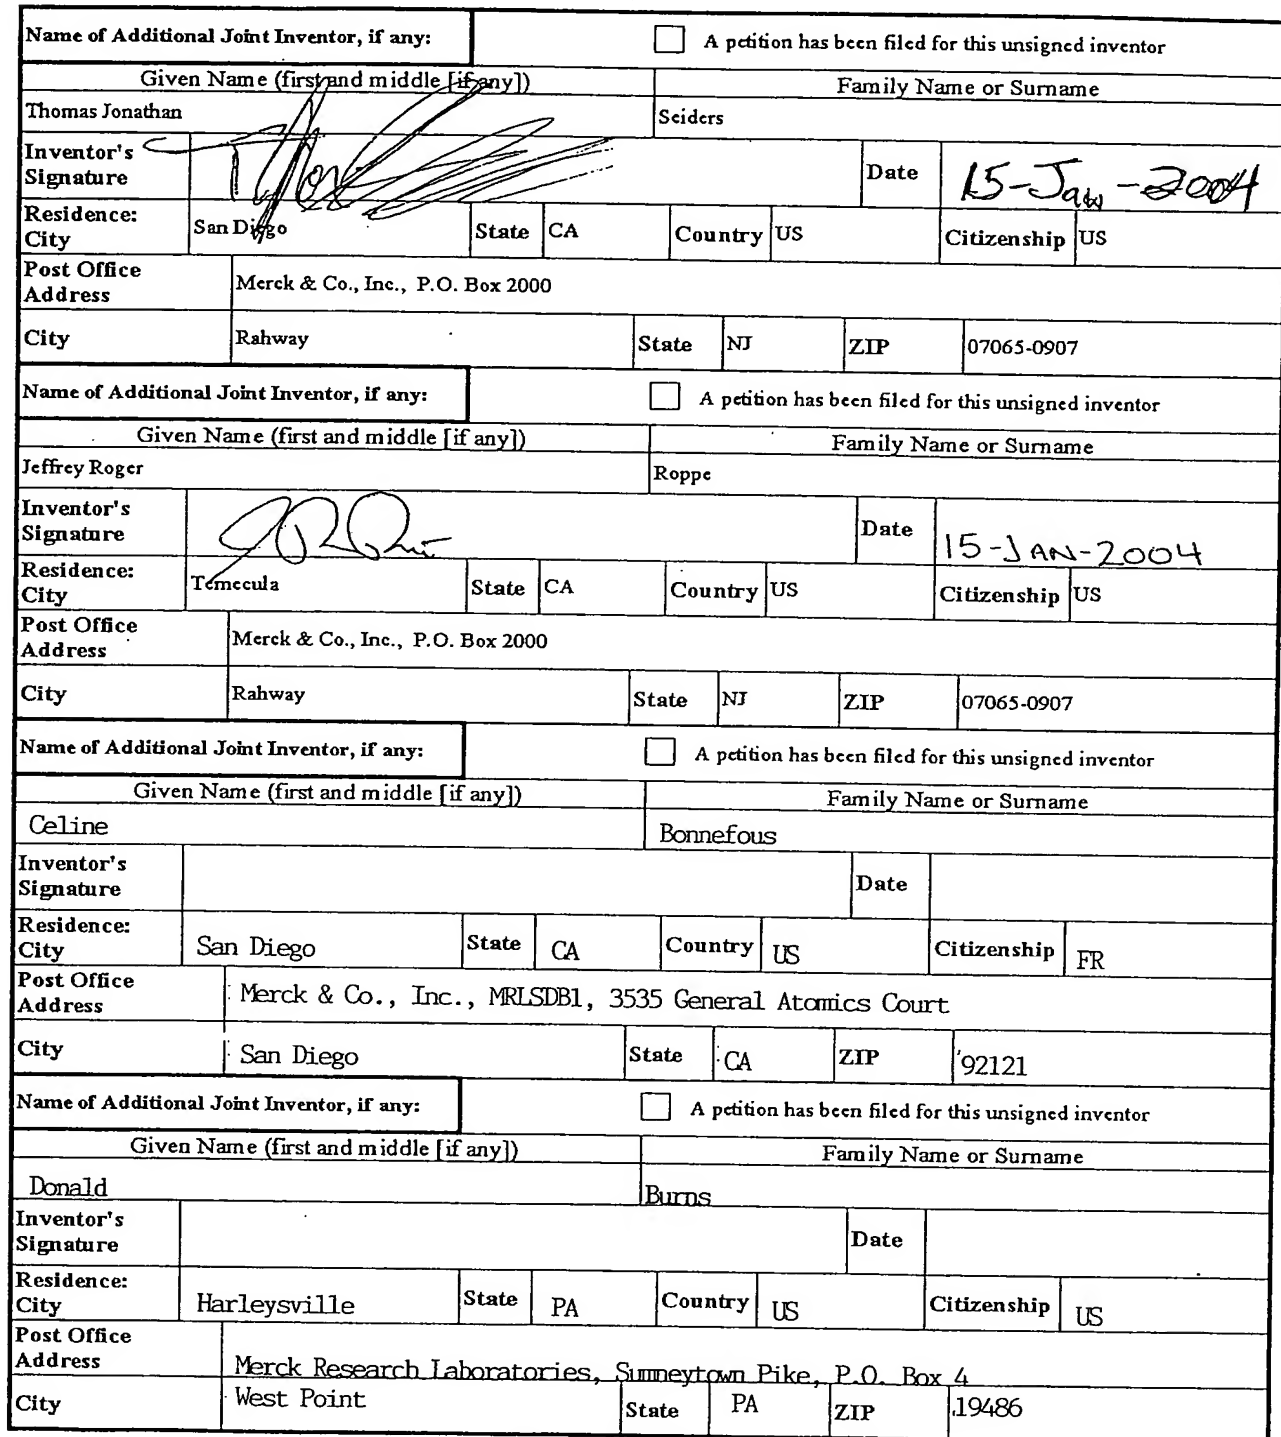 Name of Additional Joint Inventor, if any: A petition has been filed for this unsigned inventor
Given Name (first and middle [if any]) Family Name or Surname
Thomas Jonathan Seiders
Inventor's Signature Date 15-Jan-2004
Residence: City San Diego State CA Country US Citizenship US
Post Office Address Merck & Co., Inc., P.O. Box 2000
City Rahway State NJ ZIP 07065-0907
Name of Additional Joint Inventor, if any: A petition has been filed for this unsigned inventor
Given Name (first and middle [if any]) Family Name or Surname
Jeffrey Roger Roppe
Inventor's Signature Date 15-JAN-2004
Residence: City Temecula State CA Country US Citizenship US
Post Office Address Merck & Co., Inc., P.O. Box 2000
City Rahway State NJ ZIP 07065-0907
Name of Additional Joint Inventor, if any: A petition has been filed for this unsigned inventor
Given Name (first and middle [if any]) Family Name or Surname
Celine Bonnefous
Inventor's Signature Date
Residence: City San Diego State CA Country US Citizenship FR
Post Office Address Merck & Co., Inc., MRLSDB1, 3535 General Atomics Court
City San Diego State CA ZIP 92121
Name of Additional Joint Inventor, if any: A petition has been filed for this unsigned inventor
Given Name (first and middle [if any]) Family Name or Surname
Donald Burns
Inventor's Signature Date
Residence: City Harleysville State PA Country US Citizenship US
Post Office Address Merck Research Laboratories, Sumneytown Pike, P.O. Box 4
City West Point State PA ZIP 19486